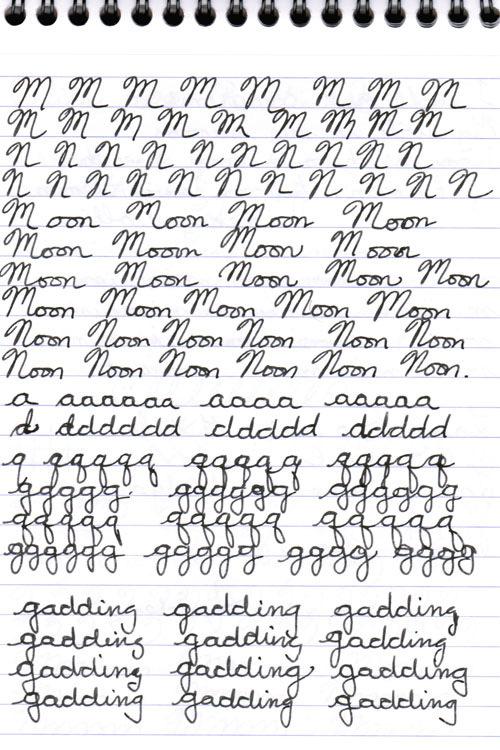 M M M M M M M M
M M M M M M M M M
N N N N N N N N N N
N N N N N N N N N N N
M oon Moon Moon Moon
Moon Mooon Moon Moon
Moon Moon Moon Moon Moon
Moon Moon Moon Moon Moon
Noon Noon Noon Noon Noon Noon
Noon Noon Noon Noon Noon Noon.
a aaaaaa aaaa aaaaa
d dddddd ddddd ddddd
q qqqqq qqqqq qqqqq
ggggg. gggggg gggggg
qqqqq qqqqq qqqqq
gggggg ggggg gggg gggg
gadding gadding gadding
gadding gadding gadding
gadding gadding gadding
gadding gadding gadding